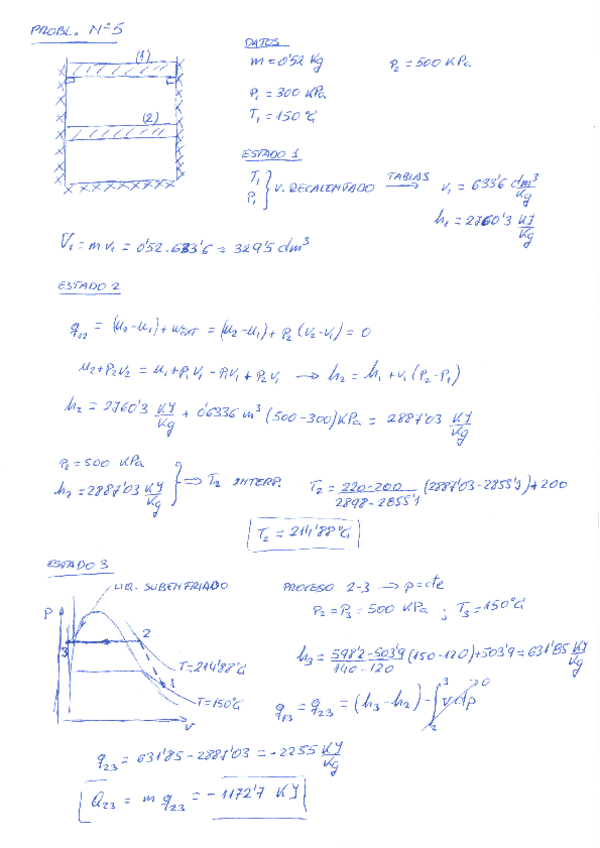 PROBL. Nº5
(1)
(2)
DATOS
m = 0'52 Kg
P₂ = 500 KPa
P₁ = 300 KPa
T₁ = 150 ºC
ESTADO 1
T₁
P₁ } V. RECALENTADO → TABLAS v₁ = 633'6 dm³/Kg
h₁ = 2760'3 KJ/Kg
V₁ = m v₁ = 0'52 · 633'6 = 329'5 dm³
ESTADO 2
q₁₂ = (u₂-u₁) + w_EXT = (u₂-u₁) + P₂ (v₂-v₁) = 0
u₂+P₂v₂ = u₁+P₁v₁ - P₁v₁ + P₂v₁ → h₂ = h₁ + v₁ (P₂-P₁)
h₂ = 2760'3 KJ/Kg + 0'6336 m³ (500-300) KPa = 2887'03 KJ/Kg
P₂ = 500 KPa
h₂ = 2887'03 KJ/Kg } ⇒ T₂ INTERP. T₂ = (220-200)/(2898-2855'1) (2887'03-2855'1) + 200
T₂ = 214'88 ºC
ESTADO 3
LIQ. SUBENFRIADO
PROCESO 2-3 → p = cte
P₂ = P₃ = 500 KPa ; T₃ = 150 ºC
P
3
2
1
T = 214'88 ºC
T = 150 ºC
v
h₃ = (598'2-503'9)/(140-120) (150-120) + 503'9 = 631'85 KJ/Kg
= q₂₃ = (h₃-h₂) - ∫₂³ v dp → 0
q₂₃ = 631'85 - 2887'03 = -2255 KJ/Kg
Q₂₃ = m q₂₃ = -1172'7 KJ